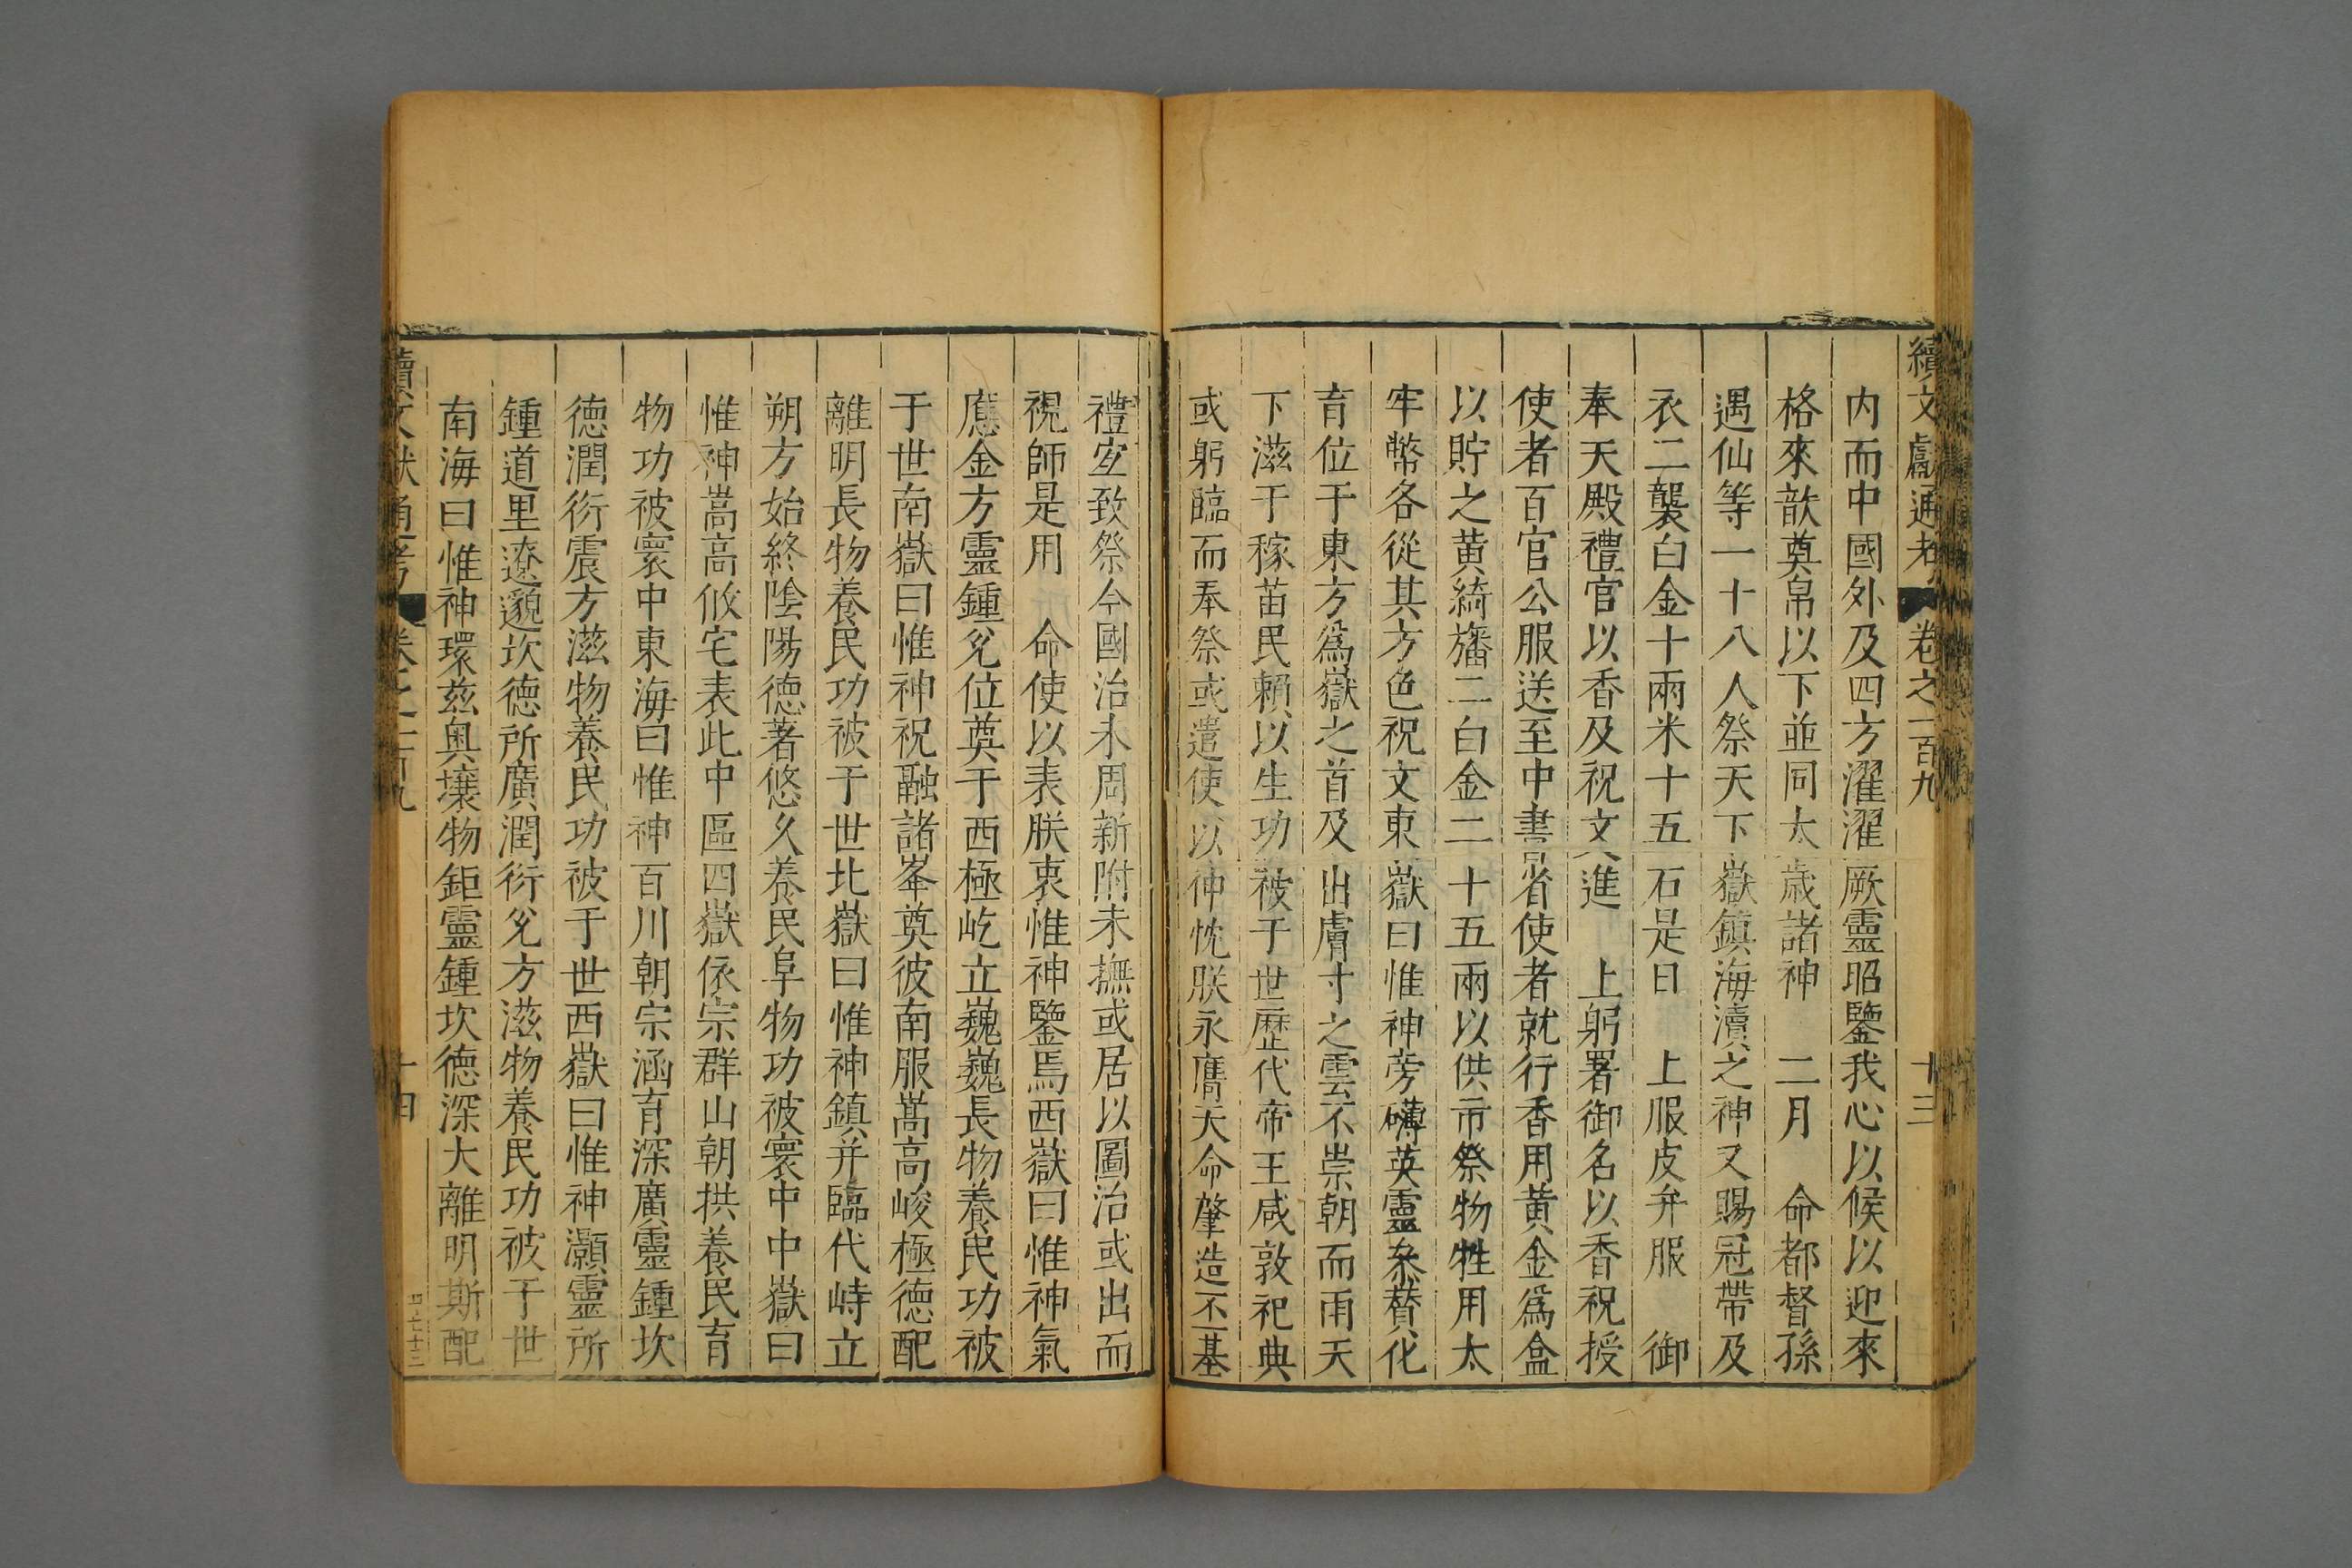 續文獻通考 卷之一百九 十三
内而中國外及四方濯濯厥靈昭鑒我心以候以迎來
格來歆奠帛以下並同太歲諸神 二月 命都督孫
遇仙等一十八人祭天下嶽鎮海瀆之神又賜冠帶及
衣二襲白金十兩米十五石是日 上服皮弁服 御
奉天殿禮官以香及祝文進 上躬署御名以香祝授
使者百官公服送至中書省使者就行香用黄金爲盒
以貯之黄綺旛二白金二十五兩以供市祭物牲用太
牢幣各從其方色祝文東嶽曰惟神旁礴英靈叅賛化
育位于東方爲嶽之首及出膚寸之雲不崇朝而雨天
下滋于稼苗民賴以生功被于世歷代帝王咸敦祀典
或躬臨而奉祭或遣使以伸忱朕永膺天命肇造丕基
禮宜致祭今國治未周新附未撫或居以圖治或出而
視師是用 命使以表朕衷惟神鑒焉西嶽曰惟神氣
應金方靈鍾兌位奠于西極屹立巍巍長物養民功被
于世南嶽曰惟神祝融諸峯奠彼南服嵩高峻極德配
離明長物養民功被于世北嶽曰惟神鎮并臨代峙立
朔方始終陰陽德著悠久養民阜物功被寰中中嶽曰
惟神嵩高攸宅表此中區四嶽依宗群山朝拱養民育
物功被寰中東海曰惟神百川朝宗涵育深廣靈鍾坎
德潤衍震方滋物養民功被于世西嶽曰惟神灝靈所
鍾道里遼邈坎德所廣潤衍兌方滋物養民功被于世
南海曰惟神環茲奥壤物鉅靈鍾坎德深大離明斯配
續文獻通考 卷之一百九 十四